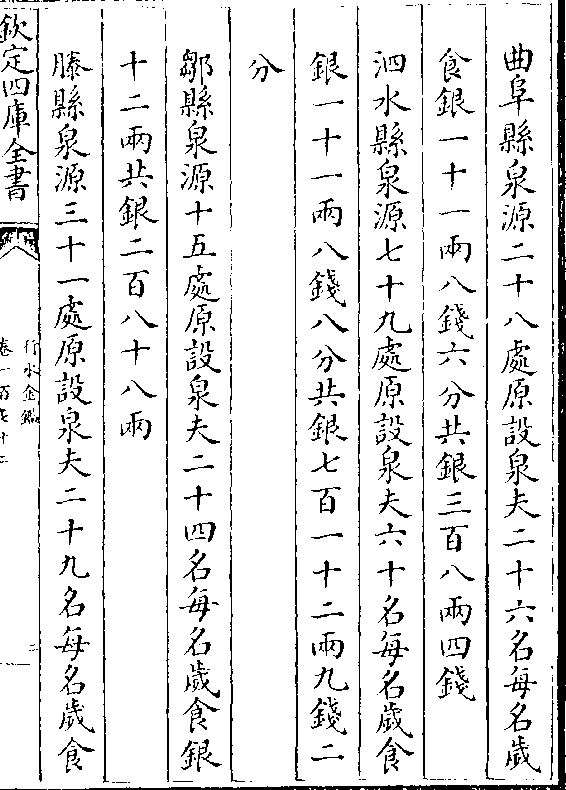 曲阜縣泉源二十八處原設泉夫二十六名每名歲
食銀一十一兩八錢六分共銀三百八兩四錢
泗水縣泉源七十九處原設泉夫六十名每名歲食
銀一十一兩八錢八分共銀七百一十二兩九錢二
分
鄒縣泉源十五處原設泉夫二十四名每名歲食銀
十二兩共銀二百八十八兩
滕縣泉源三十一處原設泉夫二十九名每名歲食
欽定四庫全書
行水金鑑
卷一百
二